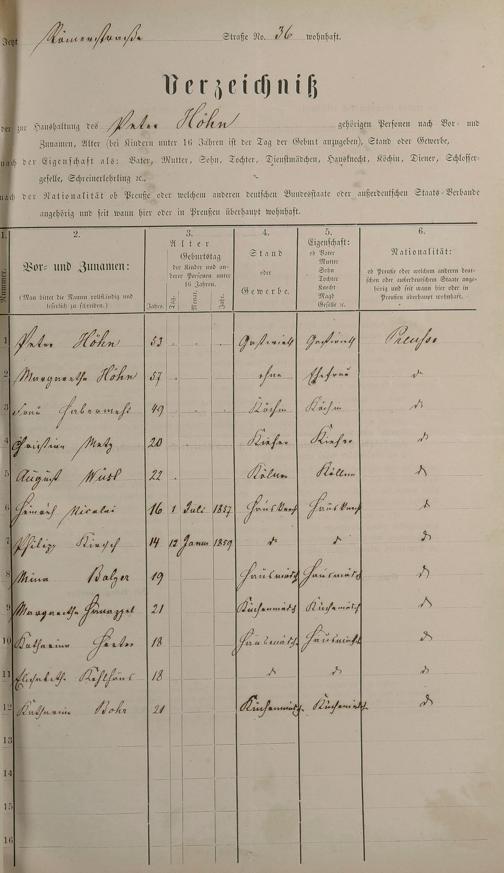 Jetzt Römerstraße Straße No. 36 wohnhaft.
Verzeichniß
der zur Haushaltung des Peter Höhn gehörigen Personen nach Vor- und
Zunamen, Alter (bei Kindern unter 16 Jahren ist der Tag der Geburt anzugeben), Stand oder Gewerbe,
nach der Eigenschaft als: Vater, Mutter, Sohn, Tochter, Dienstmädchen, Hausknecht, Köchin, Diener, Schlosser-
geselle, Schreinerlehrling ꝛc.,
nach der Nationalität ob Preuße oder welchem anderen deutschen Bundesstaate oder außerdeutschen Staats-Verbande
angehörig und seit wann hier oder in Preußen überhaupt wohnhaft.
1. 2. 3. 4. 5. 6.
Nummer.
Vor- und Zunamen:
(Man bittet die Namen vollständig und
leserlich zu schreiben.)
Alter
Geburtstag
der Kinder und an-
derer Personen unter
16 Jahren.
Jahre. Tag. Monat. Jahr.
Stand
oder
Gewerbe.
Eigenschaft:
ob Vater
Mutter
Sohn
Tochter
Knecht
Magd
Geselle ꝛc.
Nationalität:
ob Preuße oder welchem anderen deut-
schen oder außerdeutschen Staate ange-
hörig und seit wann hier oder in
Preußen überhaupt wohnhaft.
1 Peter Höhn 53 Gastwirth Gastwirth Preusse
2 Margarethe Höhn 57 ohne Ehefrau do
3 Frau Haberwehl 49 Köchin Köchin do
4 Christian Metz 20 Kiefer Kiefer do
5 August Wust 22 Kölner Köllner do
6 Heinrich Nicolai 16 1 Juli 1857 Hausknecht Hausknecht do
7 Philipp Kirsch 14 12 Janu 1859 do do do
8 Mina Balzer 19 Hausmädch Hausmädch do
9 Margarethe 21 Küchenmädch Küchemädch do
10 Katharina 18 Hausmädch Hausmädch do
11 Elisabeth 18 do do do
12 Katharina Bohr 21 Küchenmädch. Küchemädch. do
13
14
15
16